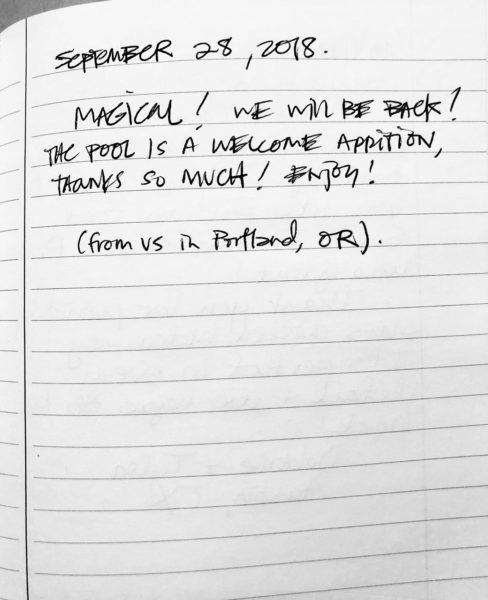 SEPTEMBER 28, 2018.
MAGICAL! WE WILL BE BACK!
THE POOL IS A WELCOME ADDITION,
THANKS SO MUCH! ENJOY!
(from us in Portland, OR).